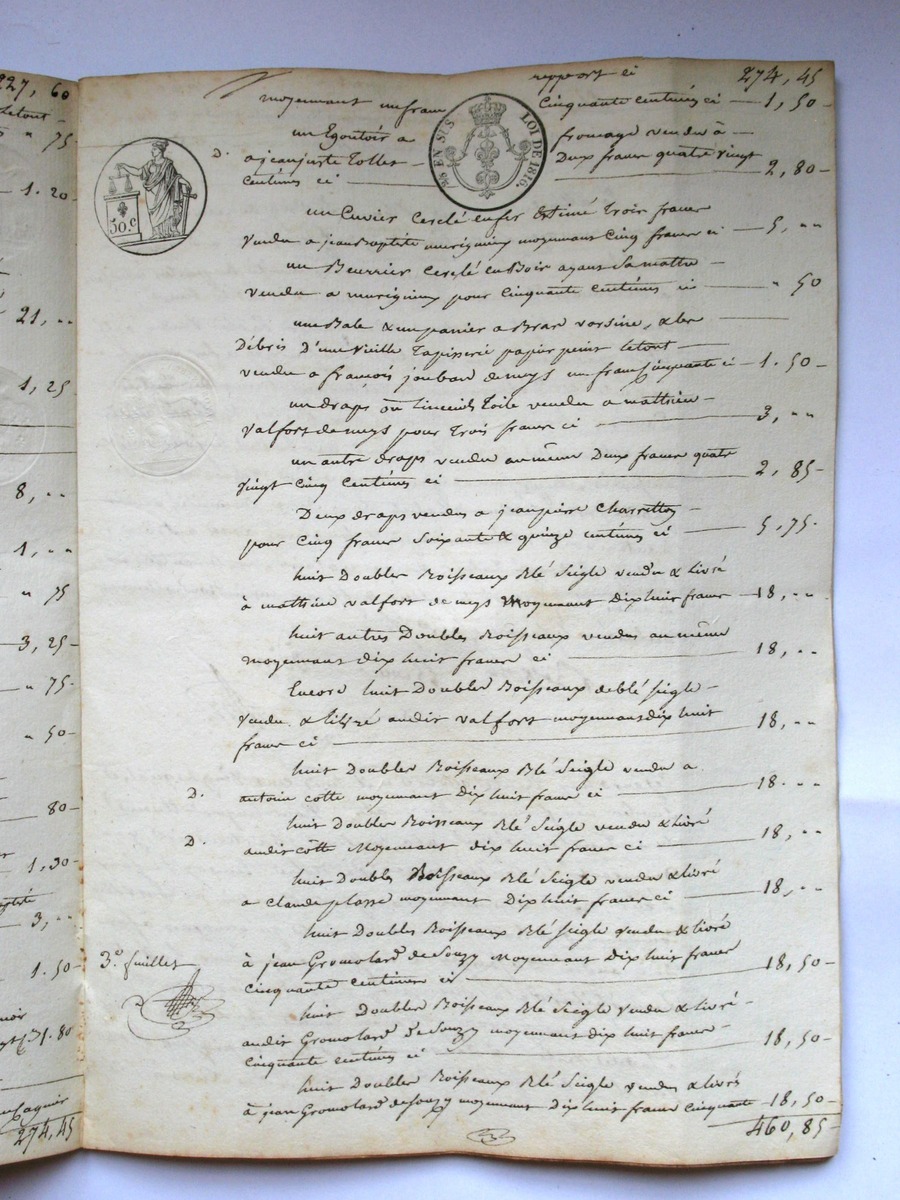 227, 60
letout -
" 75 -
1 . 20 -
21, "
1, 25
8, "
1, "
" 75
3, 25 -
" 75 -
" 50 -
80 -
1, 30 -
3, "
1. 50 -
1. 80
274, 45
report ci 274, 45
moyennant un franc cinquante centimes ci — 1, 50 -
25 EN SUS LOI DE 1816.
50 c
un Egoutoir a fromage vendu à —
D. a jeanjuste Tollet — Deux francs quatre vingt
centimes ci — 2, 80 -
un Cuvier cerclé enfer Estimé Trois francs
vendu a jean Baptiste murigneux moyennant Cinq francs ci — 5, "
un Beurrier cerclé en Bois ayant sa matte —
vendu a murigneux pour cinquante centimes ci — " 50
une Bale & un panier a Bras vorsine, & les —
Débris D'une vieille Tapisserie papier peint letout —
vendu a françois joubard de meys un franc Cinquante ci — 1 . 50 -
un draps ou linceuil Toile vendu a mathieu —
valfort de meys pour Trois francs ci — 3, "
un autre draps vendu au même Deux francs quatre
vingt cinq centimes ci — 2, 85 -
Deux draps vendus a jeanpierre Charretton
pour cinq francs soixante & quinze centimes ci — 5, 75 -
huit Doubles Boisseaux Blé seigle vendu & livré
à mathieu valfort de meys Moyennant dixhuit francs — 18, "
huit autres Doubles Boisseaux vendus au même
moyennant dix huit francs ci — 18, "
Encore huit Doubles Boisseaux de blé seigle —
vendu & livré audit valfort moyennant dix huit
francs ci — 18, "
huit Doubles Boisseaux Blé Seigle vendu a
D. antoine cotte moyennant dix huit francs ci — 18 . "
huit Doubles Boisseaux Blé Seigle vendu & livré
D. audit côtte Moyennant dix huit francs ci — 18, "
huit Doubles Boisseaux Blé Seigle vendu & livré
a Claude plasse moyennant Dix huit francs ci — 18, "
huit Doubles Boisseaux Blé seigle vendu & livré
3.e feuillet à jean Gromolard de Souzy Moyennant Dix huit francs
cinquante centimes ci — 18, 50 -
huit Doubles Boisseaux Blé Seigle vendu & livré -
audit Gromolard de Souzy moyennant dix huit francs —
cinquante centimes ci — 18, 50 -
huit Doubles Boisseaux Blé Seigle vendu & livrés
à jean Gromolard de Souzy moyennant Dix huit francs cinquante — 18, 50 -
460, 85 -